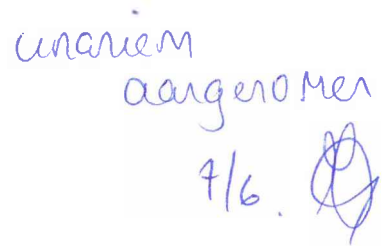 unaniem
aangenomen
7/6.